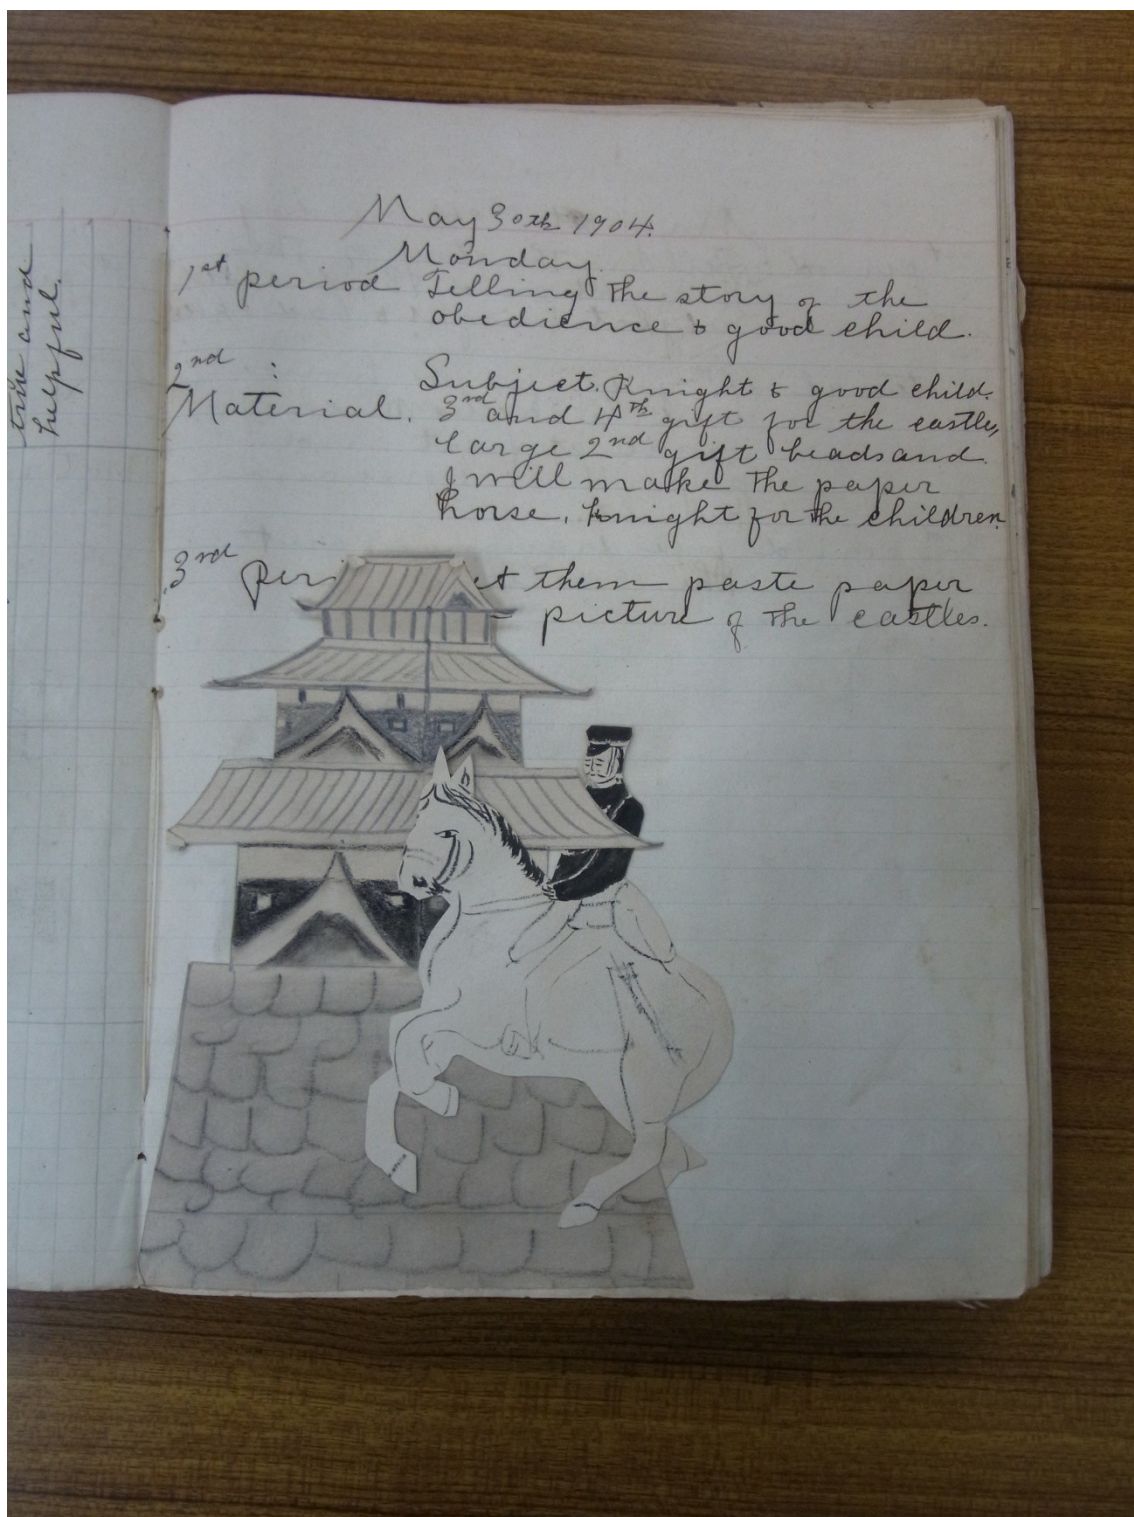 true and
helpful.
May 30th 1904.
Monday.
1st period Telling the story of the
obedience & good child.
2nd : Subject. Knight & good child.
Material. 3rd and 4th gift for the castle,
large 2nd gift beads and
I will make the paper
horse, knight for the children.
3rd peri et them paste paper
picture of the castles.